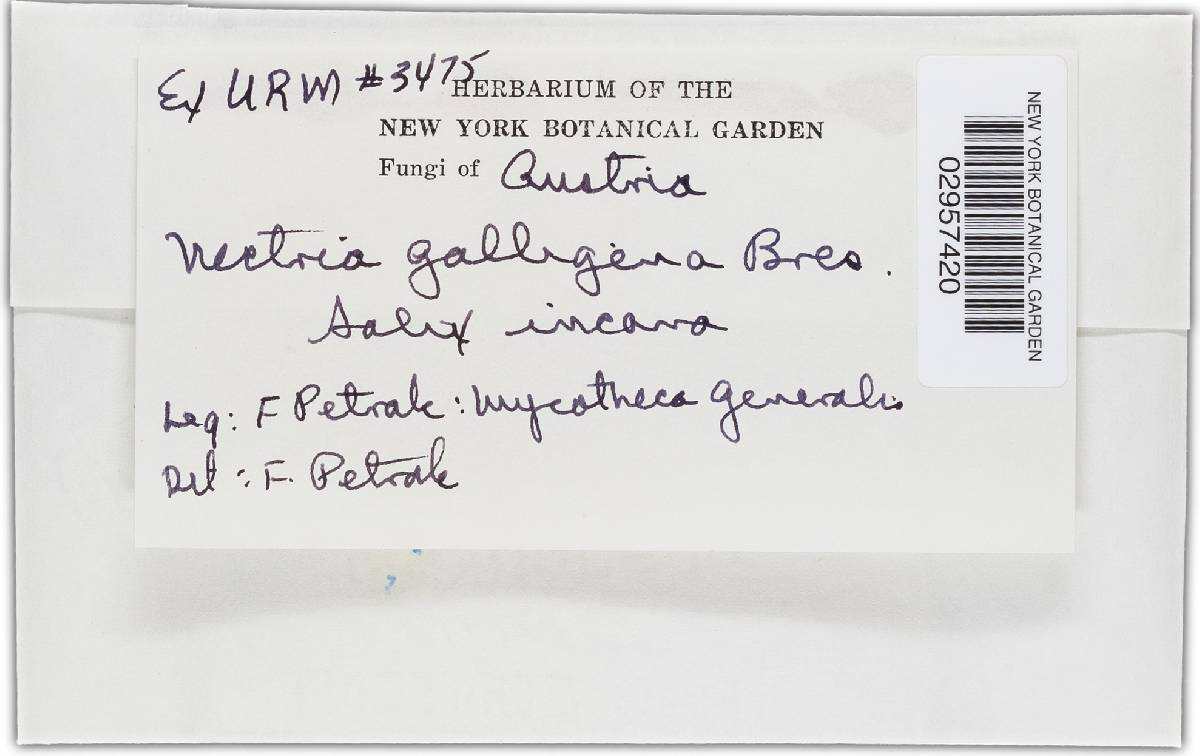 Ex URM #3475
HERBARIUM OF THE
NEW YORK BOTANICAL GARDEN
Fungi of Austria
Nectria galligena Bres.
Salix incana
Leg: F Petrak: Mycotheca generalis
Det: F. Petrak
NEW YORK BOTANICAL GARDEN
02957420